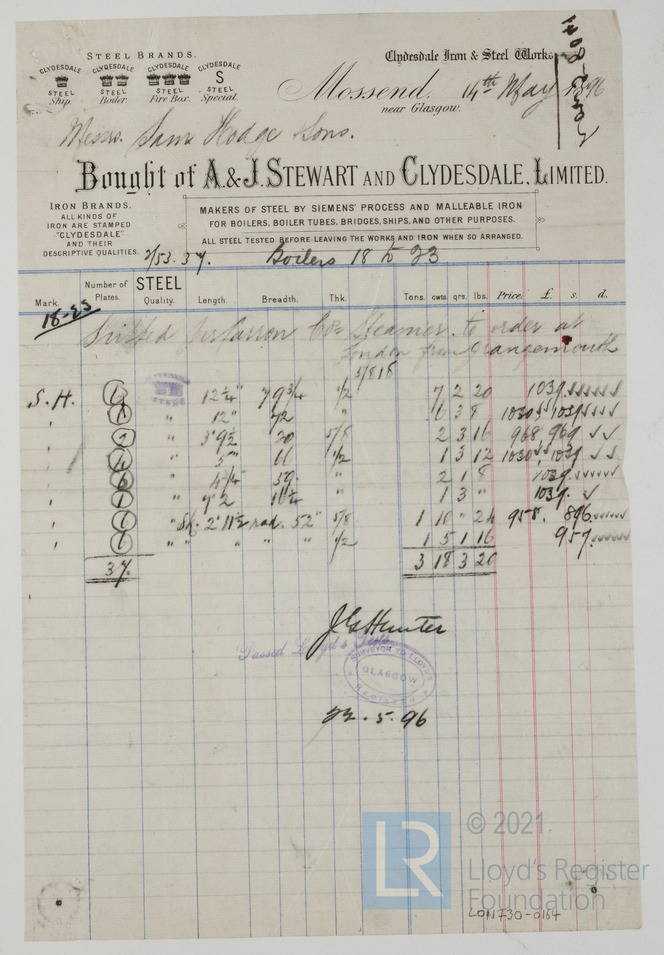 STEEL BRANDS.
CLYDESDALE STEEL Ship.
CLYDESDALE STEEL Boiler.
CLYDESDALE STEEL Fire Box.
CLYDESDALE S STEEL Special.
Clydesdale Iron & Steel Works
Mossend, 14th May 1896
near Glasgow.
Messrs. Saml Hodge Sons.
Bought of A. & J. STEWART AND CLYDESDALE, LIMITED.
IRON BRANDS.
ALL KINDS OF
IRON ARE STAMPED
"CLYDESDALE"
AND THEIR
DESCRIPTIVE QUALITIES.
MAKERS OF STEEL BY SIEMENS' PROCESS AND MALLEABLE IRON
FOR BOILERS, BOILER TUBES, BRIDGES, SHIPS, AND OTHER PURPOSES.
ALL STEEL TESTED BEFORE LEAVING THE WORKS AND IRON WHEN SO ARRANGED.
2/53.37. Boilers 18 to 23
Mark. Number of Plates. STEEL Quality. Length. Breadth. Thk. Tons. cwts. qrs. lbs. Price. £. s. d.
18-23
Shipped per Carron Co's Steamer to order at
London from Grangemouth
5/8 18
S.H. 12 1/4" 79 3/4 1/2 7 2 20 1039
" " 12" 72 " 6 3 8 1030 1039
" " 3' 9 1/2 20 5/8 2 3 16 968 969
" " 5" 11 1/2 1 3 12 1030 1039
" " 4 1/4" 59 " 2 1 8 1039
" " 9" 2 " 1 3 " 1039
" " Sk. 2' 11 1/2 rad. 52" 5/8 1 10 " 24 958. 896
" " " " " 1/2 1 5 1 16 957
37 3 18 3 20
J G Hunter
Passed Lloyd's Tests
SURVEYOR TO LLOYD'S
GLASGOW
REGISTER
22.5.96
LR © 2021
Lloyd's Register
Foundation
LON730-0164